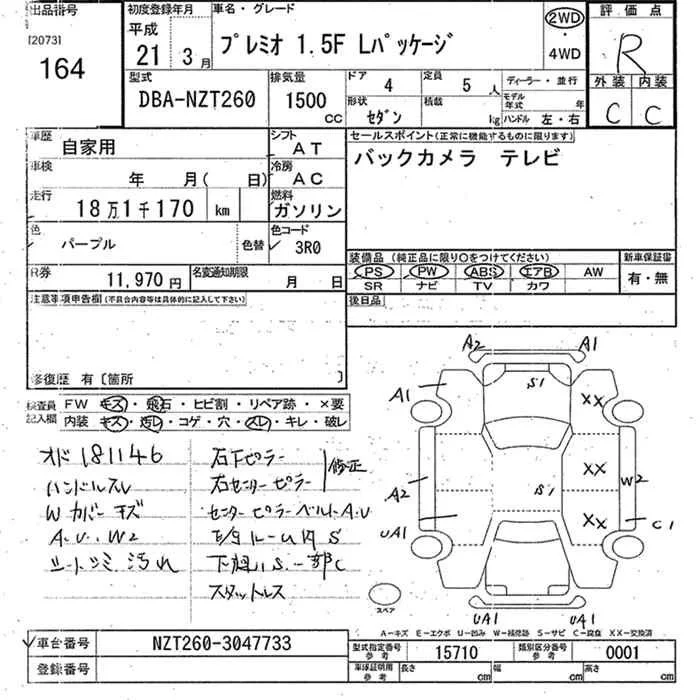 出品番号
[2073]
164
初度登録年月
平成
21 3月
車名・グレード
プレミオ 1.5F Lパッケージ
2WD
・
4WD
評価点
R
外装 内装
C C
型式
DBA-NZT260
排気量
1500
CC
ドア
4
定員
5人
形状
セダン
積載
kg
ディーラー・並行
モデル
年式 年
ハンドル 左・右
車歴
自家用
シフト
AT
車検
年 月( 日)
冷房
AC
走行
18万1千170 km
燃料
ガソリン
色
パープル
色替
色コード
3R0
R券
11,970円
名変通知期限
月 日
セールスポイント(正常に機能するものに限ります)
バックカメラ テレビ
装備品(純正品に限り○をつけてください)
PS PW ABS エアB AW
SR ナビ TV カワ
新車保証書
有・無
後日品
注意事項申告欄(不具合内容等は具体的に記入して下さい)
修復歴 有〔箇所 〕
検査員
記入欄
FW キズ・飛石・ヒビ割・リペア跡・×要
内装 キズ・汚レ・コゲ・穴・スレ・キレ・破レ
オド 181146
ハンドルスレ
Wカバー キズ
A.U.W2
シートシミ 汚れ
右Fピラー
右センターピラー
修正
センターピラーベルトA.U
下廻りS.一部C
スタットレス
A2 A1
A1
S1
XX
XX
XX
A2
S1
W2
UA1
C1
UA1 UA1
スペア
A－キズ E－エクボ U－凹み W－補修跡 S－サビ C－腐食 XX－交換済
車台番号
NZT260-3047733
登録番号
型式指定番号
参考
15710
類別区分番号
参考
0001
車庫証明用
参考
長さ cm
幅 cm
高さ cm